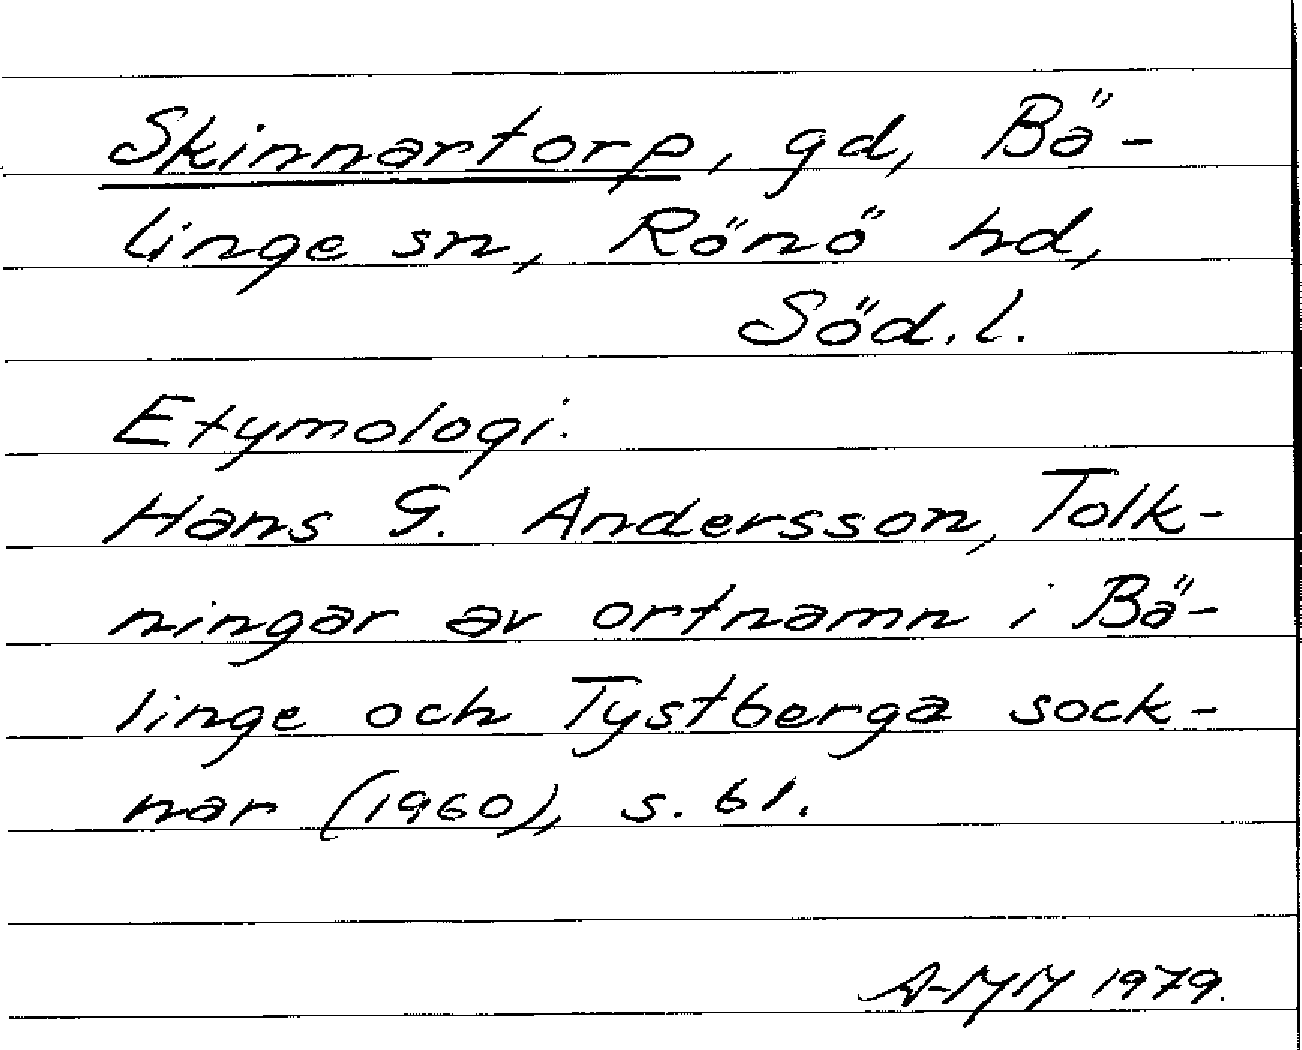 Skinnartorp, gd, Bä-
linge sn, Rönö hd,
Söd.l.
Etymologi:
Hans G. Andersson, Tolk-
ningar av ortnamn i Bä-
linge och Tystberga sock-
nar (1960), s. 61.
A-MM 1979.